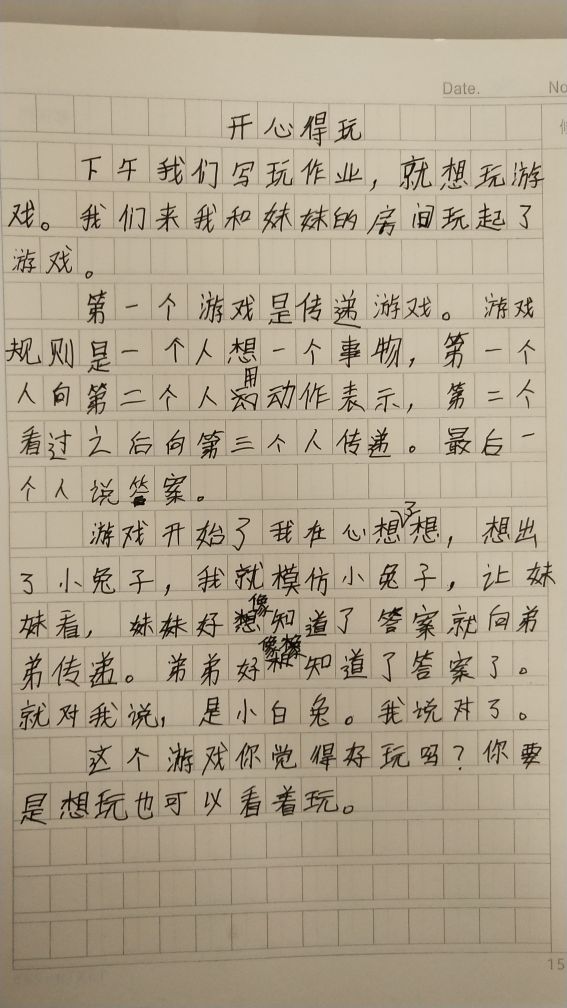 Date.
No
开心得玩
下午我们写玩作业，就想玩游
戏。我们来我和妹妹的房间玩起了
游戏。
第一个游戏是传递游戏。游戏
规则是一个人想一个事物，第一个
人向第二个人用动作表示，第二个
看过之后向第三个人传递。最后一
个人说答案。
游戏开始了我在心想了想，想出
了小兔子，我就模仿小兔子，让妹
妹看，妹妹好像知道了答案就向弟
弟传递。弟弟好像知道了答案了。
就对我说，是小白兔。我说对了。
这个游戏你觉得好玩吗？你要
是想玩也可以看着玩。
15